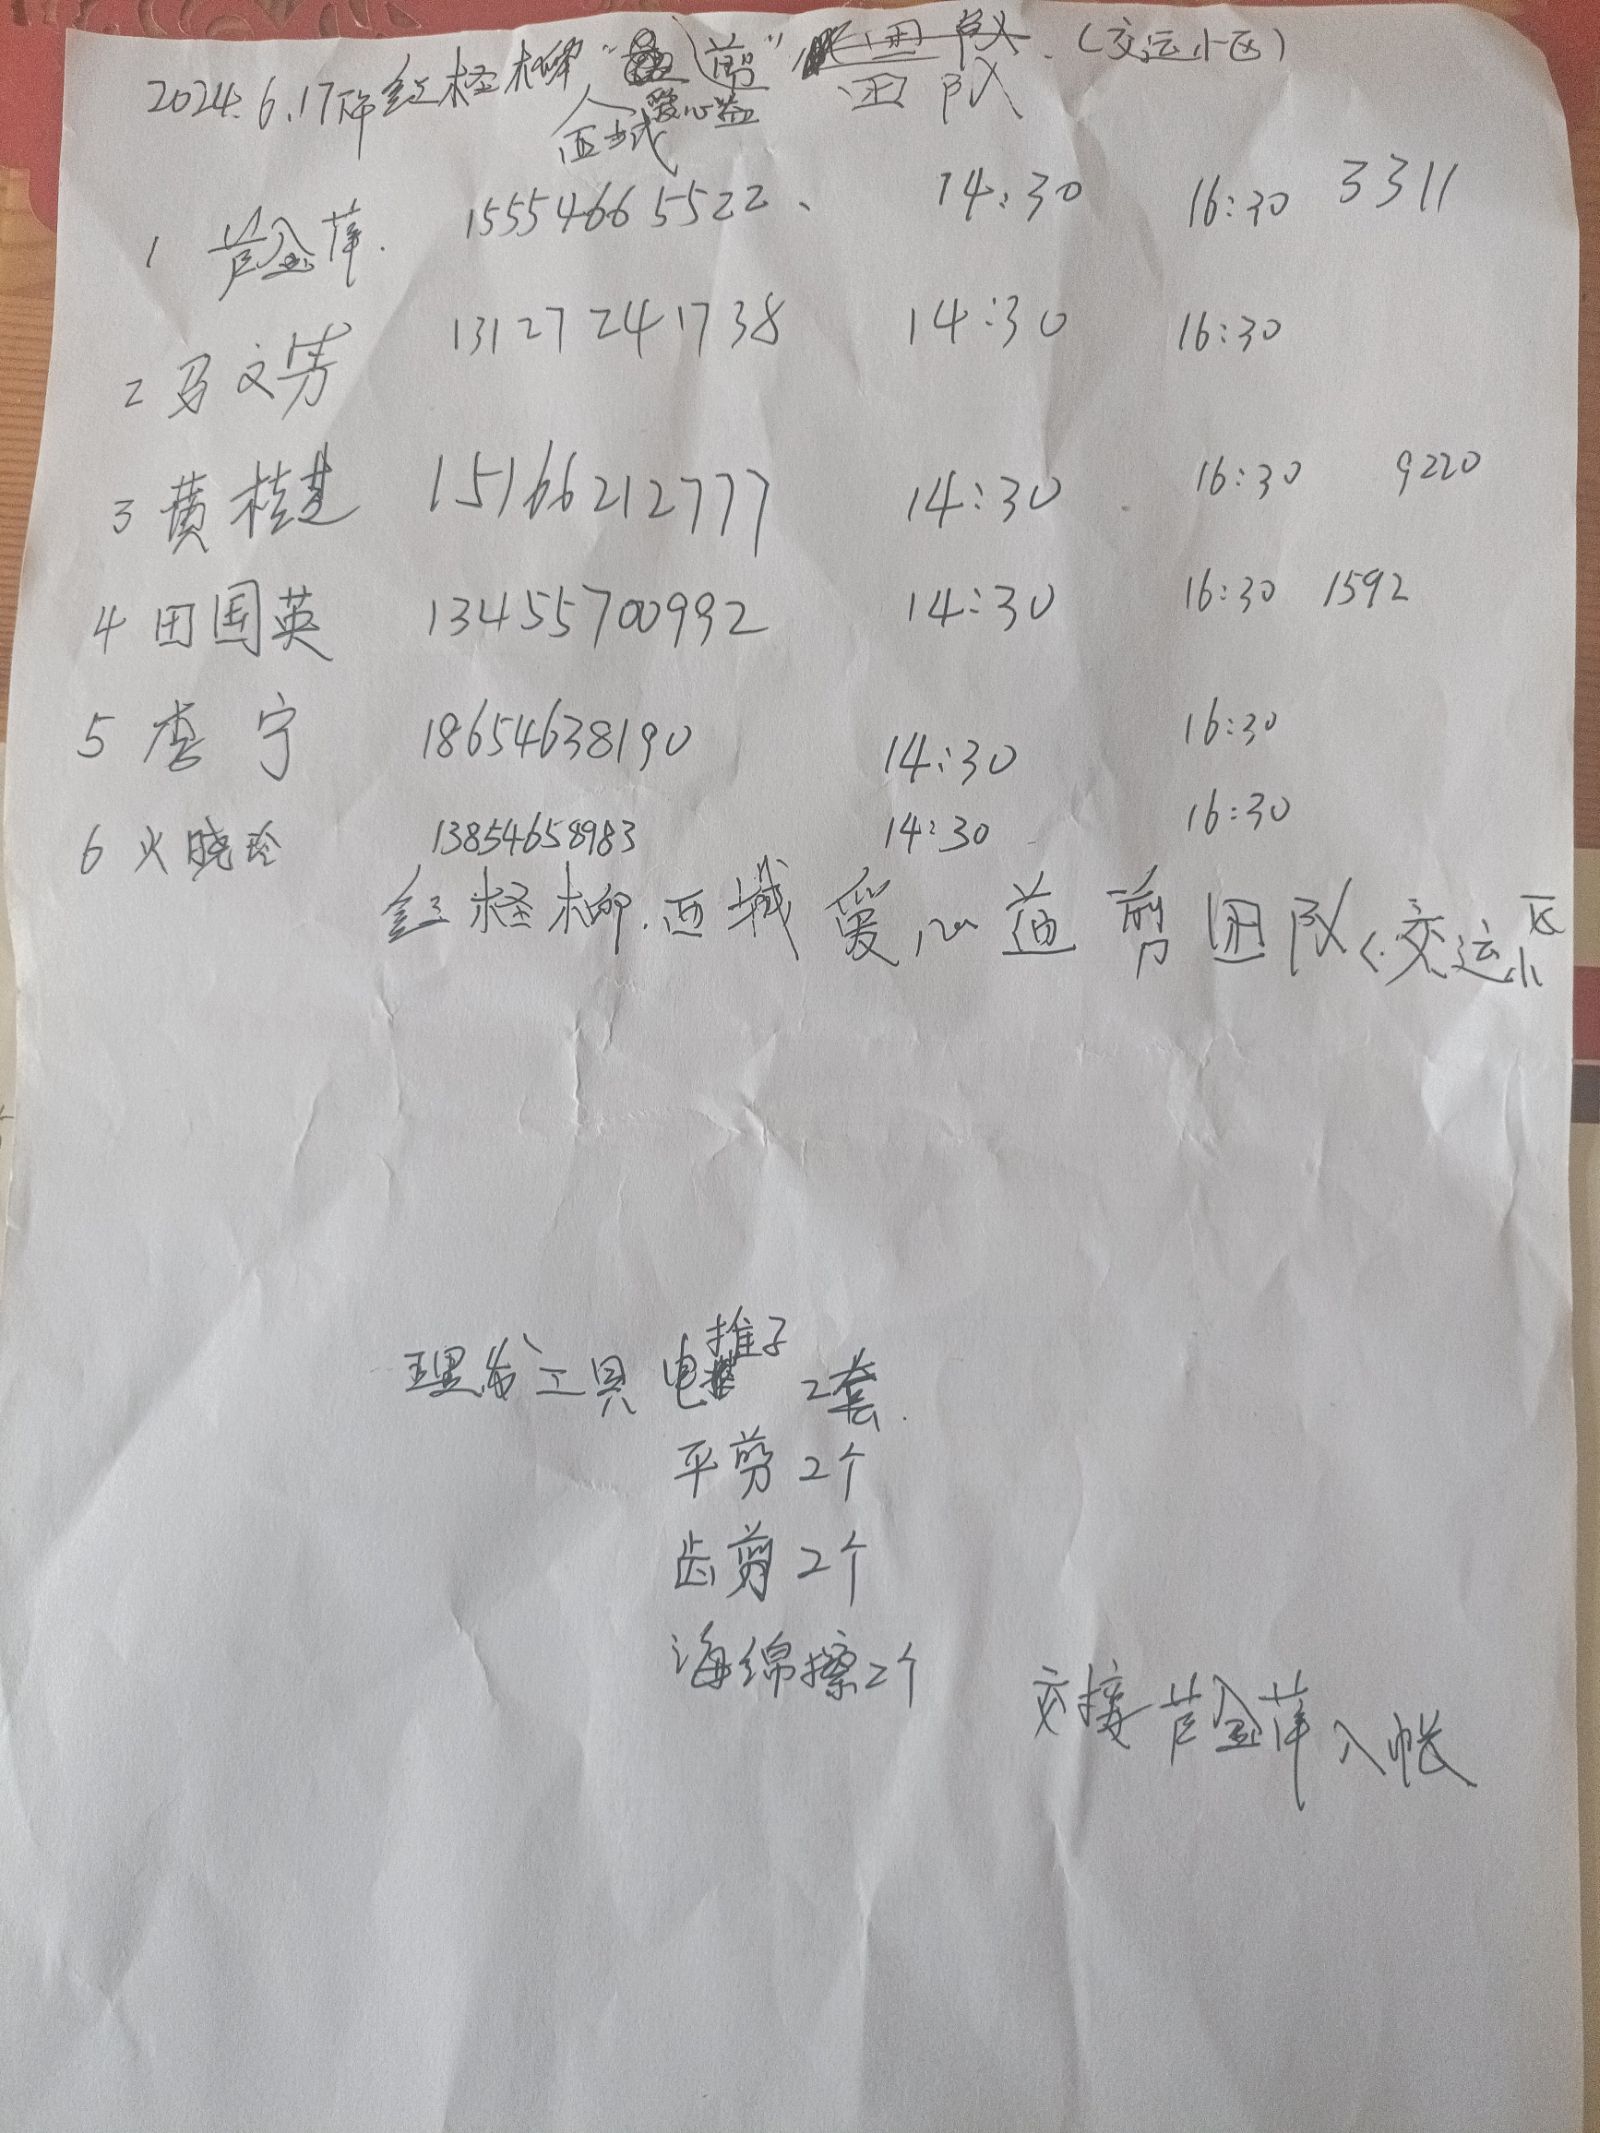 2024.6.17下午红柽柳"益剪"团队(交运小区)
西城爱心益 团队
1 芦金萍. 15554665522、 14:30 16:30 3311
2 马文芳 13127241738 14:30 16:30
3 黄桂芝 15166212777 14:30 16:30 9220
4 田国英 13455700992 14:30 16:30 1592
5 李宁 18654638190 14:30 16:30
6 火晓玲 13854658983 14:30 16:30
红柽柳.西城爱心益剪团队(交运小区
理发工具 电推子 2套.
平剪 2个
齿剪 2个
海绵擦2个
交接芦金萍入帐